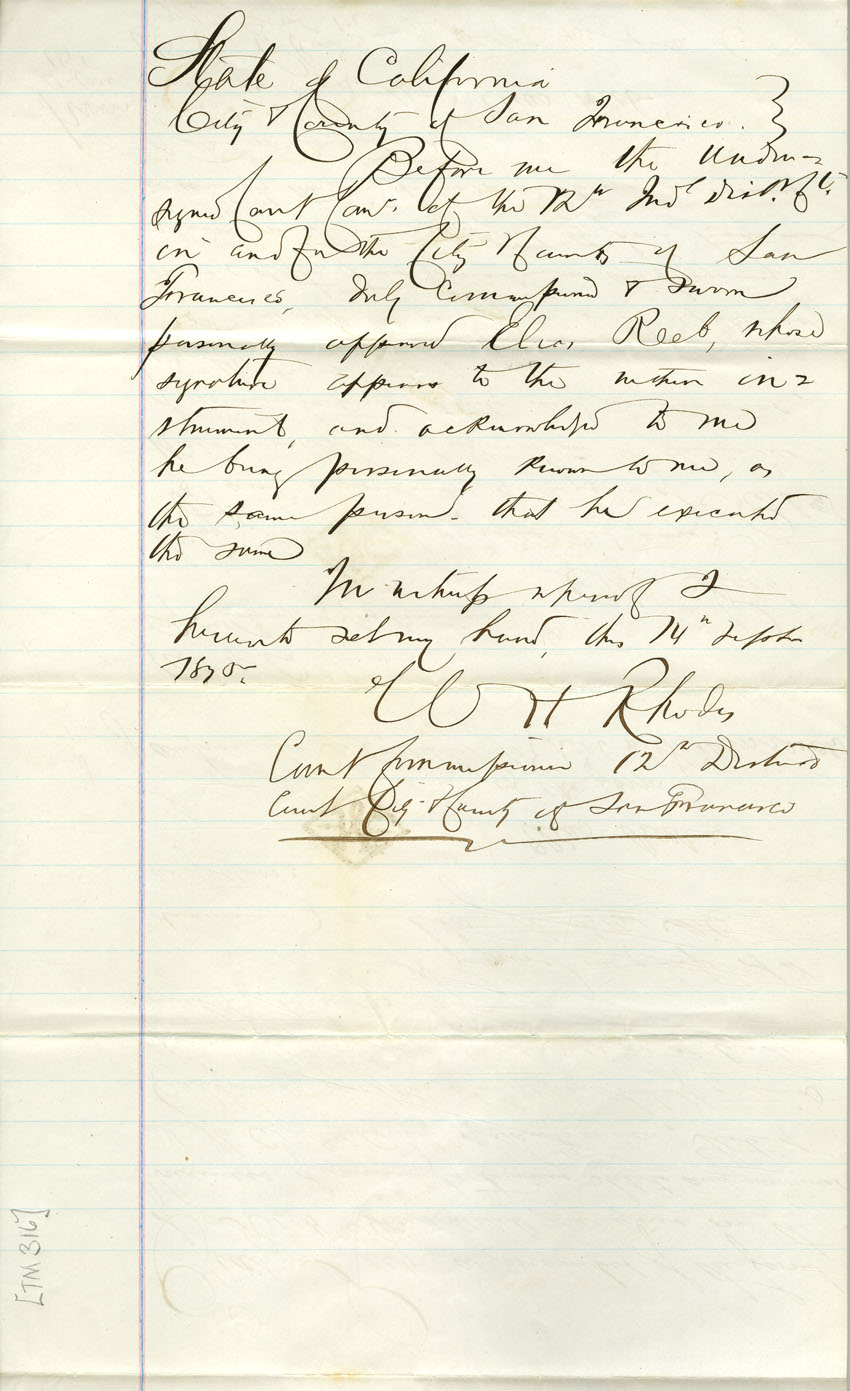 State of California
City & County of San Francisco. }
Before me the under=
signed Court Com. of the 12th Jud'l Dist. Ct.
in and for the City & County of San
Francisco, duly Commissioned & sworn
personally appeared Elias Reeb, whose
signature appears to the within in=
strument, and acknowledged to me
he being personally known to me, as
the same person. that he executed
the same
In witness whereof I
hereunto set my hand, this 14th Septbr
1875.
W H Rhodes
Court Commissioner 12th District
Court City & County of San Francisco
[TM 316]